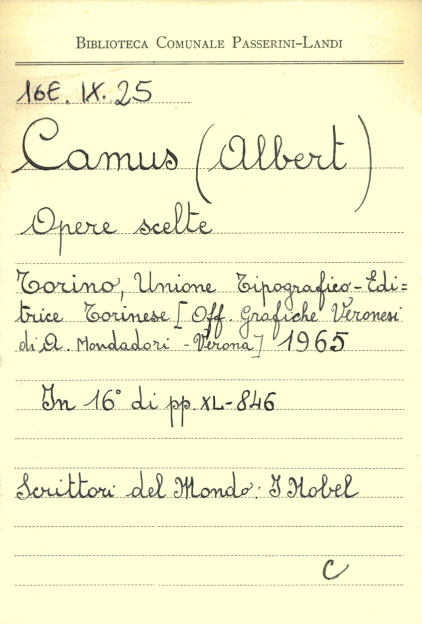 BIBLIOTECA COMUNALE PASSERINI-LANDI
16E. IX. 25
Camus (Albert)
Opere scelte
Torino, Unione Tipografico-Edi=
trice Torinese [Off. Grafiche Veronesi
di A. Mondadori - Verona] 1965
In 16° di pp. XL-846
Scrittori del Mondo: I Nobel
C